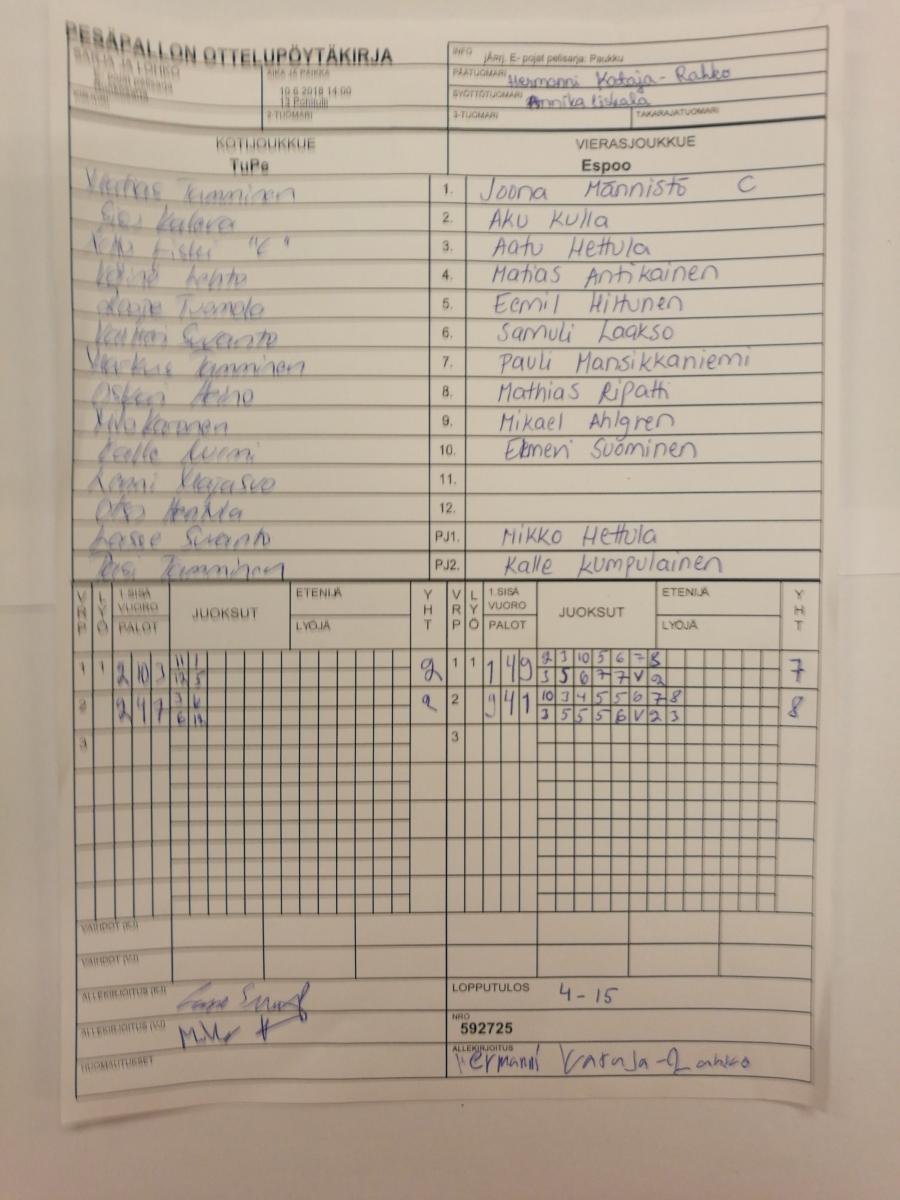 PESÄPALLON OTTELUPÖYTÄKIRJA
SARJA JA LOHKO
E- pojat pelisarja
AIKA JA PAIKKA
10.6.2018 14:00
2-TUOMARI
INFO jÄrrj. E- pojat pelisarja: Paukku
PÄÄTUOMARI Hermanni Kataja-Rahko
SYÖTTÖTUOMARI Annika Liskala
3-TUOMARI TAKARAJATUOMARI
KOTIJOUKKUE VIERASJOUKKUE
TuPe Espoo
Tamminen 1. Joona Männistö C
2. Aku Kulla
"C" 3. Aatu Hettula
Lehto 4. Matias Antikainen
Tuomola 5. Eemil Hiltunen
Suvanto 6. Samuli Laakso
Markus Tamminen 7. Pauli Mansikkaniemi
Oskari Heino 8. Mathias Ripatti
9. Mikael Ahlgren
Kalle Nurmi 10. Elmeri Suominen
11.
12.
Lasse Suvanto PJ1. Mikko Hettula
Pasi Tamminen PJ2. Kalle Kumpulainen
VRP LYÖ 1.SISÄ VUORO PALOT JUOKSUT ETENIJÄ LYÖJÄ YHT VRP LYÖ 1.SISÄ VUORO PALOT JUOKSUT ETENIJÄ LYÖJÄ YHT
1 1 2 10 3 11 1 2 1 1 1 4 9 2 3 10 5 6 7 8 7
12 5 3 5 6 7 7 V 2
2 2 4 7 3 6 2 2 9 4 1 10 3 4 5 5 6 7 8 8
6 12 3 5 5 5 6 V 2 3
3 3
VAIHDOT (KJ)
VAIHDOT (VJ)
ALLEKIRJOITUS (KJ) LOPPUTULOS 4-15
ALLEKIRJOITUS (VJ) NRO 592725
HUOMAUTUKSET ALLEKIRJOITUS Hermanni Kataja-Rahko